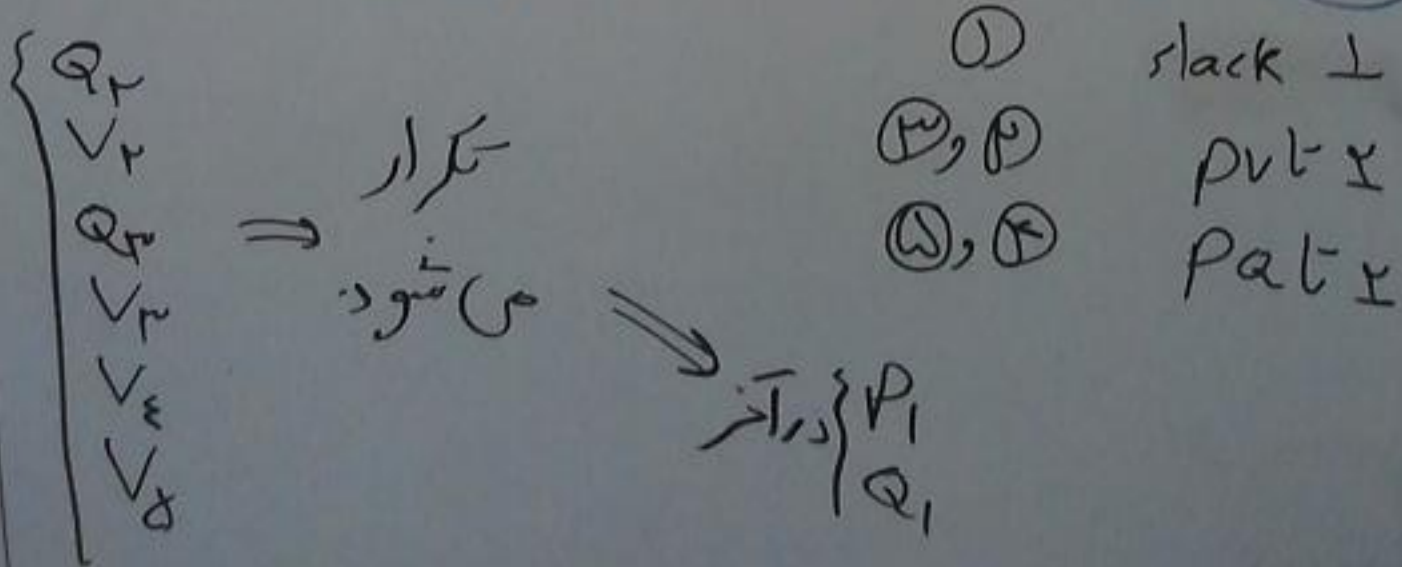 Q۲
V۲
Q۳
V۳
V٤
V۵
⇒ تکرار
می‌شود.
⇒ در آخر { P۱
Q۱
① slack ۱
②, ③ pvt ۲
④, ⑤ pqt ۲